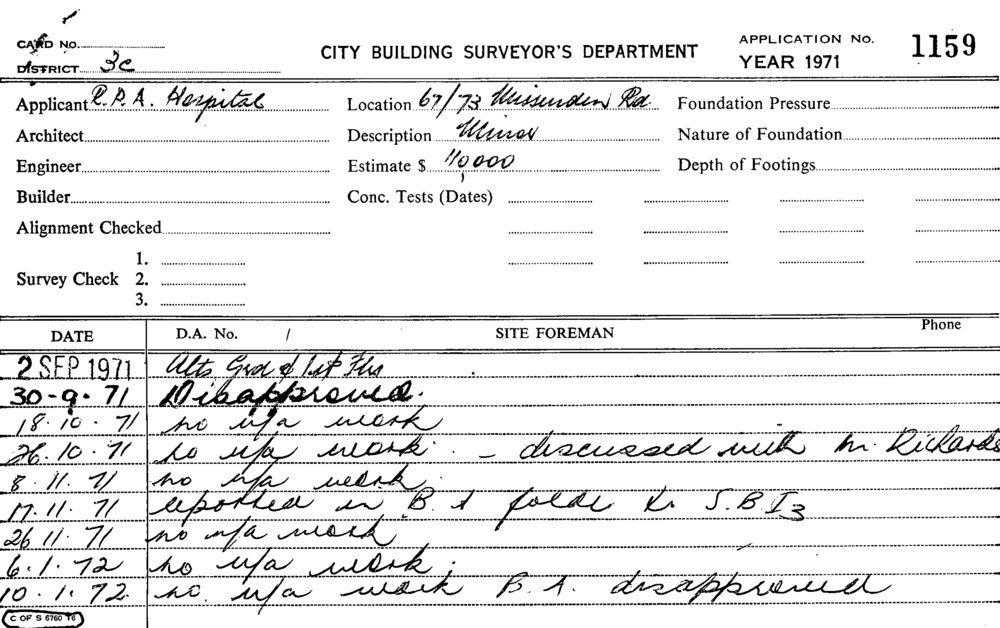 CARD No.
DISTRICT 3c
CITY BUILDING SURVEYOR'S DEPARTMENT
APPLICATION No. 1159
YEAR 1971
Applicant R.P.A. Hospital
Location 67/73 Missenden Rd
Foundation Pressure
Architect
Description Minor
Nature of Foundation
Engineer
Estimate $ 10,000
Depth of Footings
Builder
Conc. Tests (Dates)
Alignment Checked
Survey Check 1.
2.
3.
DATE D.A. No. / SITE FOREMAN Phone
2 SEP 1971 Alts Grd & 1st Flrs
30-9-71 Disapproved.
18.10.71 no u/a work
26.10.71 no u/a work. - discussed with Mr. Richards
8.11.71 no u/a work.
17.11.71 reported in B.A folde to S.B I3
26 11.71 no u/a work
6.1.72 no u/a work.
10.1.72. no. u/a work B.A. disapproved
C OF S 6760 76